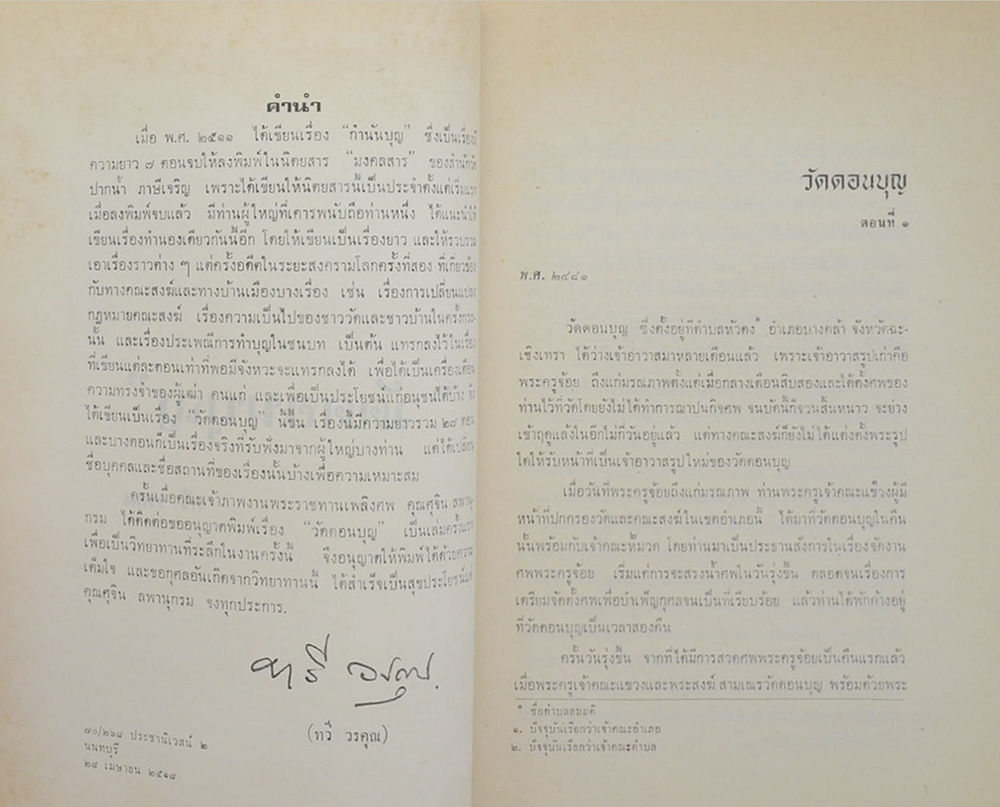 คำนำ
เมื่อ พ.ศ. ๒๕๑๑ ได้เขียนเรื่อง “กำนันบุญ” ซึ่งเป็นเรื่องมี
ความยาว ๗ ตอนจบให้ลงพิมพ์ในนิตยสาร “มงคลสาร” ของสำนักวัด
ปากน้ำ ภาษีเจริญ เพราะได้เขียนให้นิตยสารนี้เป็นประจำตั้งแต่เริ่มแรก
เมื่อลงพิมพ์จบแล้ว มีท่านผู้ใหญ่ที่เคารพนับถือท่านหนึ่ง ได้แนะนำให้
เขียนเรื่องทำนองเดียวกันนี้อีก โดยให้เขียนเป็นเรื่องยาว และให้รวบรวม
เอาเรื่องราวต่าง ๆ แต่ครั้งอดีตในระยะสงครามโลกครั้งที่สอง ที่เกี่ยวข้อง
กับทางคณะสงฆ์และทางบ้านเมืองบางเรื่อง เช่น เรื่องการเปลี่ยนแปลง
กฎหมายคณะสงฆ์ เรื่องความเป็นไปของชาววัดและชาวบ้านในครั้งกระ-
นั้น และเรื่องประเพณีการทำบุญในชนบท เป็นต้น แทรกลงไว้ในเรื่อง
ที่เขียนแต่ละตอนเท่าที่พอมีจังหวะจะแทรกลงได้ เพื่อได้เป็นเครื่องเตือน
ความทรงจำของผู้เฒ่า คนแก่ และเพื่อเป็นประโยชน์แก่อนุชนได้บ้าง จึง
ได้เขียนเป็นเรื่อง “วัดดอนบุญ” นี้ขึ้น เรื่องนี้มีความยาวรวม ๒๘ ตอน
และบางตอนก็เป็นเรื่องจริงที่รับฟังมาจากผู้ใหญ่บางท่าน แต่ได้เปลี่ยน
ชื่อบุคคลและชื่อสถานที่ของเรื่องนั้นบ้างเพื่อความเหมาะสม
ครั้นเมื่อคณะเจ้าภาพงานพระราชทานเพลิงศพ คุณศุจิน ลพานุ-
กรม ได้ติดต่อขออนุญาตพิมพ์เรื่อง “วัดดอนบุญ” เป็นเล่มครั้งแรก
เพื่อเป็นวิทยาทานที่ระลึกในงานครั้งนี้ จึงอนุญาตให้พิมพ์ได้ด้วยความ
เต็มใจ และขอกุศลอันเกิดจากวิทยาทานนี้ ได้สำเร็จเป็นสุขประโยชน์แด่
คุณศุจิน ลพานุกรม จงทุกประการ.
ทวี วรคุณ.
(ทวี วรคุณ)
๗๐/๒๖๔ ประชานิเวสน์ ๒
นนทบุรี
๒๔ เมษายน ๒๕๑๘
วัดดอนบุญ
ตอนที่ ๑
พ.ศ. ๒๔๘๑
วัดดอนบุญ ซึ่งตั้งอยู่ที่ตำบลหัวดง* อำเภอบางคล้า จังหวัดฉะ-
เชิงเทรา ได้ว่างเจ้าอาวาสมาหลายเดือนแล้ว เพราะเจ้าอาวาสรูปเก่าคือ
พระครูจ้อย ถึงแก่มรณภาพตั้งแต่เมื่อกลางเดือนสิบสองและได้ตั้งศพของ
ท่านไว้ที่วัดโดยยังไม่ได้ทำการฌาปนกิจศพ จนบัดนี้ก็จวนสิ้นหนาว จะย่าง
เข้าฤดูแล้งในอีกไม่กี่วันอยู่แล้ว แต่ทางคณะสงฆ์ก็ยังไม่ได้แต่งตั้งพระรูป
ใดให้รับหน้าที่เป็นเจ้าอาวาสรูปใหม่ของวัดดอนบุญ
เมื่อวันที่พระครูจ้อยถึงแก่มรณภาพ ท่านพระครูเจ้าคณะแขวง๑ผู้มี
หน้าที่ปกครองวัดและคณะสงฆ์ในเขตอำเภอนี้ ได้มาที่วัดดอนบุญในคืน
นั้นพร้อมกับเจ้าคณะหมวด๒ โดยท่านมาเป็นประธานสั่งการในเรื่องจัดงาน
ศพพระครูจ้อย เริ่มแต่การจะสรงน้ำศพในวันรุ่งขึ้น ตลอดจนเรื่องการ
เตรียมจัดตั้งศพเพื่อบำเพ็ญกุศลจนเป็นที่เรียบร้อย แล้วท่านได้พักค้างอยู่
ที่วัดดอนบุญเป็นเวลาสองคืน
ครั้นวันรุ่งขึ้น จากที่ได้มีการสวดศพพระครูจ้อยเป็นคืนแรกแล้ว
เมื่อพระครูเจ้าคณะแขวงและพระสงฆ์ สามเณรวัดดอนบุญ พร้อมด้วยพระ
* ชื่อตำบลสมมติ
๑. ปัจจุบันเรียกว่าเจ้าคณะอำเภอ
๒. ปัจจุบันเรียกว่าเจ้าคณะตำบล